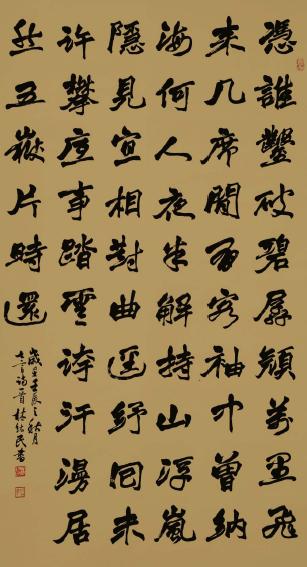 憑誰鑿破碧孱顏萬里飛
來几席間有客袖中曾納
海何人夜半解持山浮嵐
隱見宜相對曲逕紆回未
許攀底事踏雲誇汗漫居
然五嶽片時還
壬辰之秋月
民書